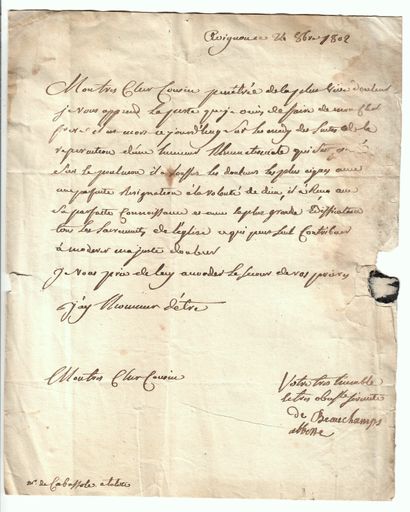 Avignon ce 24 8bre 1802
Mon tres Cher Cousin penetrée de la plus vive douleur
je vous apprend la perte que je viens de faire de mon Cher
frere il est mort ce jourd'huy sur les midy des suites de la
reparution d'une humeur Rhumatismale qui s'est
sur la poitrine il a souffer les douleurs les plus aigues avec
une parfaite Resignation a la volonté de dieu, il a Reçu avec
sa parfaite Connoissance et avec la plus grande Edification
tous les Sacrements de l'eglise ce qui peut seul Contribuer
a moderer ma juste douleur
Je vous prie de luy accorder le secour de vos prieres
j'ay l'honneur d'être
Mon tres Cher Cousin
Votre tres humble
et tres obeiste servante
de Beauchamps
abbesse
mr. de Cabassole